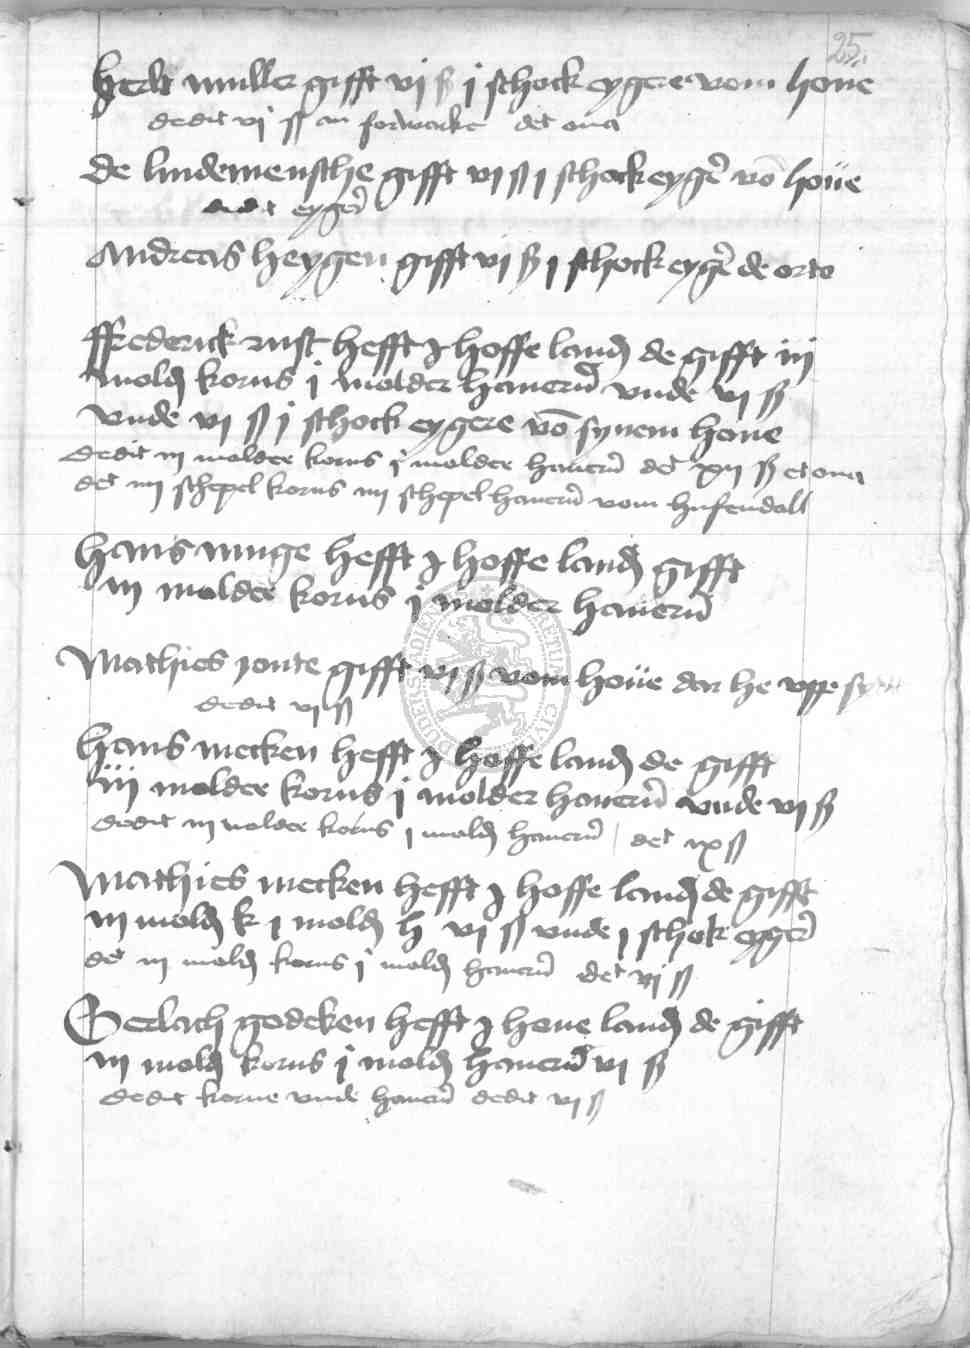 25
herlt muller gifft vj ß j schock eygere vom houe
dedit vj ß an forwarke det oua
de lindemensche gifft vj ß j schock eyger vō houe
dedit eyger
Andreas heygen gifft vj ß j schock eyger de orto
ffrederick rust hefft j hoffe land de gifft iij
mold korns j molder hauern vnde vj ß
vnde vj ß j schock eygere vō synem houe
dedit iij molder korns j molder hauern det xij ß et oua
det iiij schepel korns iiij schepel hauern vom husendall
hans hefft j hoffe land gifft
iij molder korns j molder hauern
Mathies gifft vj ß vom houe dar he vppe
dedit vj ß
hans mecken hefft j hoffe land de gifft
iij molder korns j molder hauern vnde vj ß
dedit iij molder korns j mold hauern det ix ß
Mathies mecken hefft j hoffe land de gifft
iij mold k j mold h vj ß vnde j schok eyger
det iij mold korns j mold hauern det vj ß
Gerlach godeken hefft j houe land de gifft
iij mold korns j mold hauern vj ß
dedit korne vnde hauern dedit vj ß